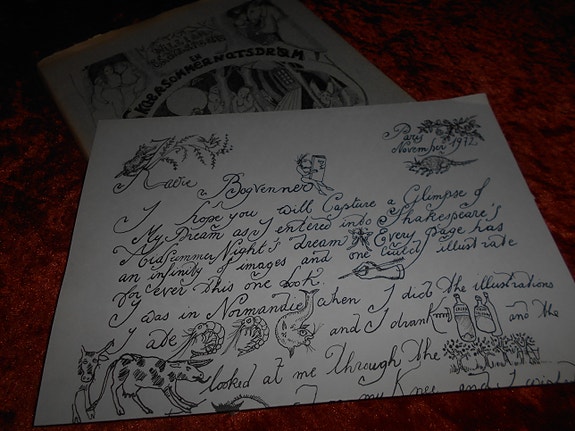 WILLIAM
SHAKESPEARE
SKÆRSOMMERNATSDRØM
Paris
November 1972
Kære Bogvenner
I hope you will Capture a Glimpse of
My Dream as I entered into Shakespeare's
Midsummer Night's Dream Every page has
an infinity of images and one could illustrate
for ever this one book.
I was in Normandie when I did the illustrations
I ate and I drank my and the
looked at me through the
my Knee and I